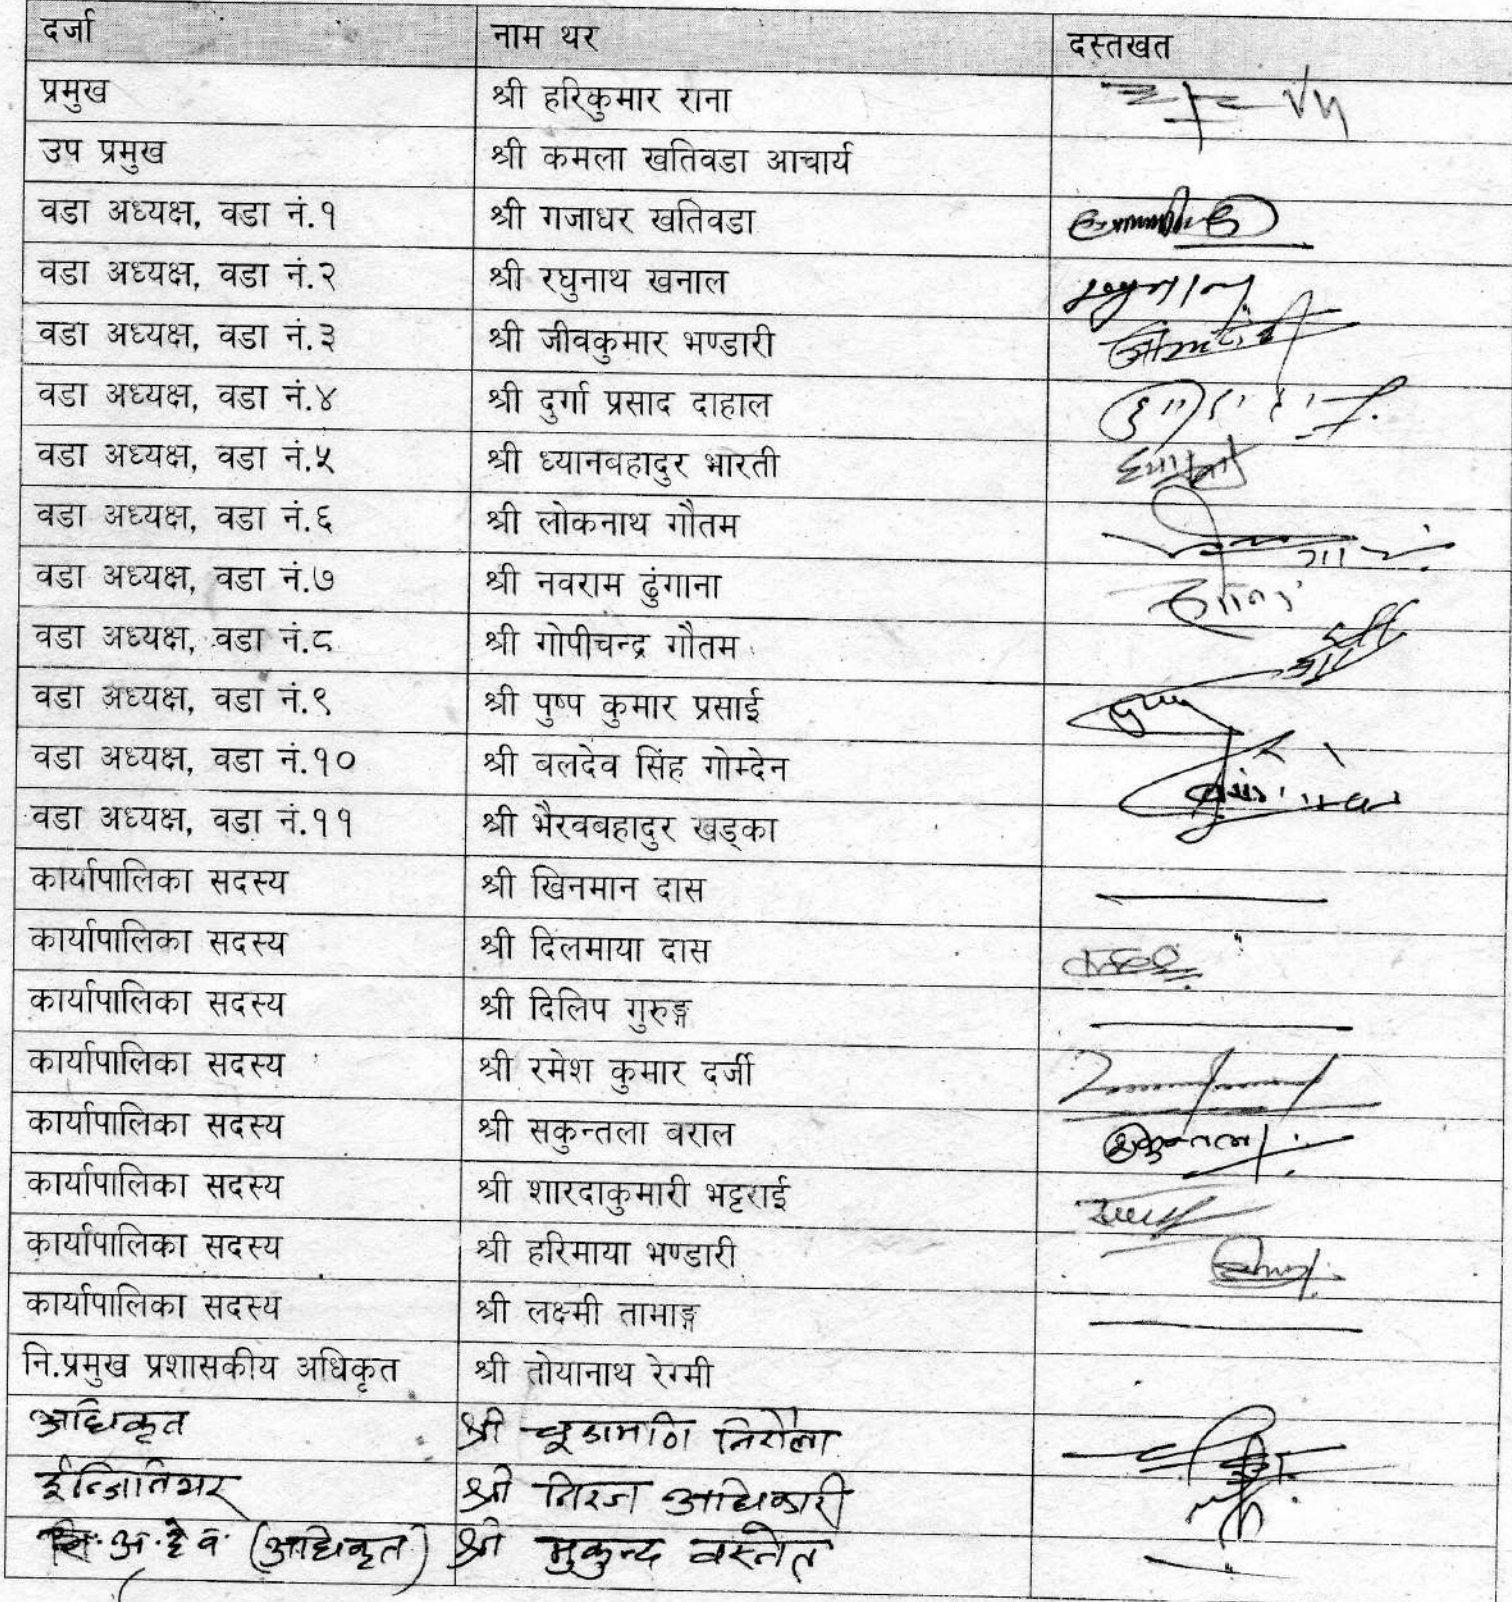 दर्जा नाम थर दस्तखत
प्रमुख श्री हरिकुमार राना
उप प्रमुख श्री कमला खतिवडा आचार्य
वडा अध्यक्ष, वडा नं.१ श्री गजाधर खतिवडा
वडा अध्यक्ष, वडा नं.२ श्री रघुनाथ खनाल
वडा अध्यक्ष, वडा नं.३ श्री जीवकुमार भण्डारी
वडा अध्यक्ष, वडा नं.४ श्री दुर्गा प्रसाद दाहाल
वडा अध्यक्ष, वडा नं.५ श्री ध्यानबहादुर भारती
वडा अध्यक्ष, वडा नं.६ श्री लोकनाथ गौतम
वडा अध्यक्ष, वडा नं.७ श्री नवराम ढुंगाना
वडा अध्यक्ष, वडा नं.८ श्री गोपीचन्द्र गौतम
वडा अध्यक्ष, वडा नं.९ श्री पुष्प कुमार प्रसाई
वडा अध्यक्ष, वडा नं.१० श्री बलदेव सिंह गोम्देन
वडा अध्यक्ष, वडा नं.११ श्री भैरवबहादुर खड्का
कार्यापालिका सदस्य श्री खिनमान दास
कार्यापालिका सदस्य श्री दिलमाया दास
कार्यापालिका सदस्य श्री दिलिप गुरुङ्ग
कार्यापालिका सदस्य श्री रमेश कुमार दर्जी
कार्यापालिका सदस्य श्री सकुन्तला वराल शकुन्तला
कार्यापालिका सदस्य श्री शारदाकुमारी भट्टराई
कार्यापालिका सदस्य श्री हरिमाया भण्डारी
कार्यापालिका सदस्य श्री लक्ष्मी तामाङ्ग
नि.प्रमुख प्रशासकीय अधिकृत श्री तोयानाथ रेग्मी
अधिकृत श्री चूडामणि निरौला
ईन्जिनियर श्री निरज अधिकारी
सि.अ.हे.व. (अधिकृत) श्री मुकुन्द वस्नेत